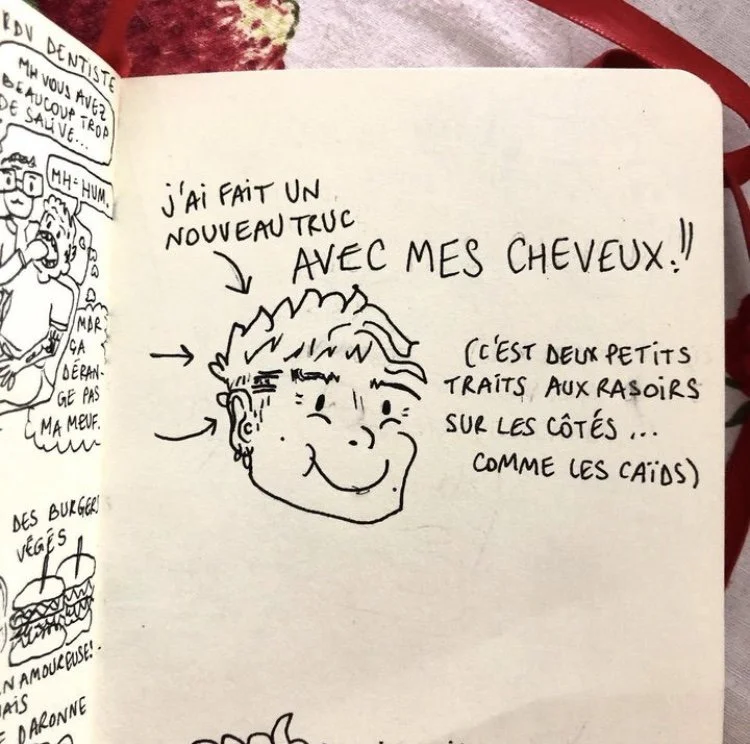 RDV DENTISTE
MH VOUS AVEZ
BEAUCOUP TROP
DE SALIVE...
MH-HUM.
MDR
ÇA
DÉRAN-
GE PAS
MA MEUF.
DES BURGERS
VÉGÉS
AMOUREUSE!
DARONNE
J'AI FAIT UN
NOUVEAU TRUC
AVEC MES CHEVEUX!!
(C'EST DEUX PETITS
TRAITS AUX RASOIRS
SUR LES CÔTÉS ...
COMME LES CAÏDS)